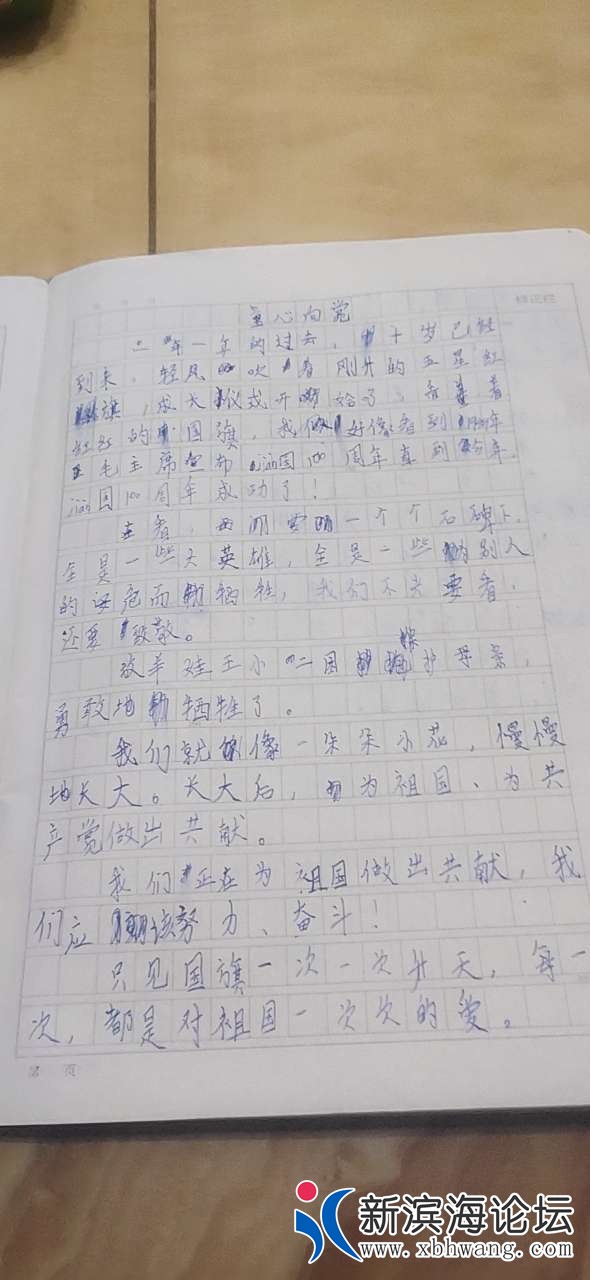 童心向党
一年一年的过去，十岁已经
到来，轻风吹着刚升的五星红
旗，成大仪式开始了，看着
红红的国旗，我们好像看到
毛主席宣布 国100周年直到今年，
国100周年成功了！
看，一个个石碑下，
全是一些大英雄，全是一些为别人
的 危而牺牲，我们不光要看，
还要致敬。
放羊娃王小二因保护母亲，
勇敢地牺牲了。
我们就像一朵朵小花，慢慢
地长大。长大后，为祖国、为共
产党做出共献。
我们正在为祖国做出共献，我
们应该努力、奋斗！
只见国旗一次一次升天，每一
次，都是对祖国一次次的爱。
第 页
新滨海论坛
www.xbhwang.com